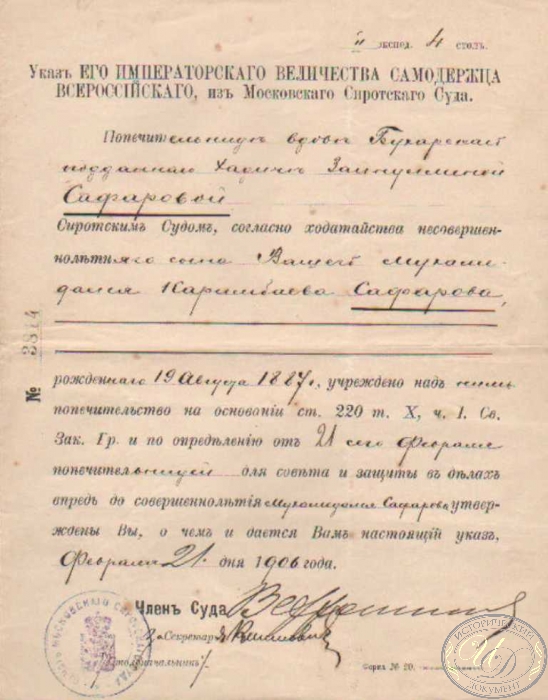 II экспед. 4 столъ.
Указъ ЕГО ИМПЕРАТОРСКАГО ВЕЛИЧЕСТВА САМОДЕРЖЦА
ВСЕРОССІЙСКАГО, изъ Московскаго Сиротскаго Суда.
Попечительницѣ вдовѣ Бухарскаго
подданнаго
Сафаровой
Сиротскимъ Судомъ, согласно ходатайства несовершен-
нолѣтняго сына Вашего
Каримбаева Сафарова,
№ 3814
рожденнаго 19 Августа 1887 г., учреждено надъ нимъ
попечительство на основаніи ст. 220 т. X, ч. I. Св.
Зак. Гр. и по опредѣленію отъ 21 сего Февраля
попечительницей для совѣта и защиты въ дѣлахъ
впредь до совершеннолѣтія Сафарова утвер-
ждены Вы, о чемъ и дается Вамъ настоящій указъ,
Февраля 21 дня 1906 года.
Членъ Суда
Секретарь
Столоначальникъ
Форма № 20.
ИСТОРИЧЕСКИЙ
ДОКУМЕНТ